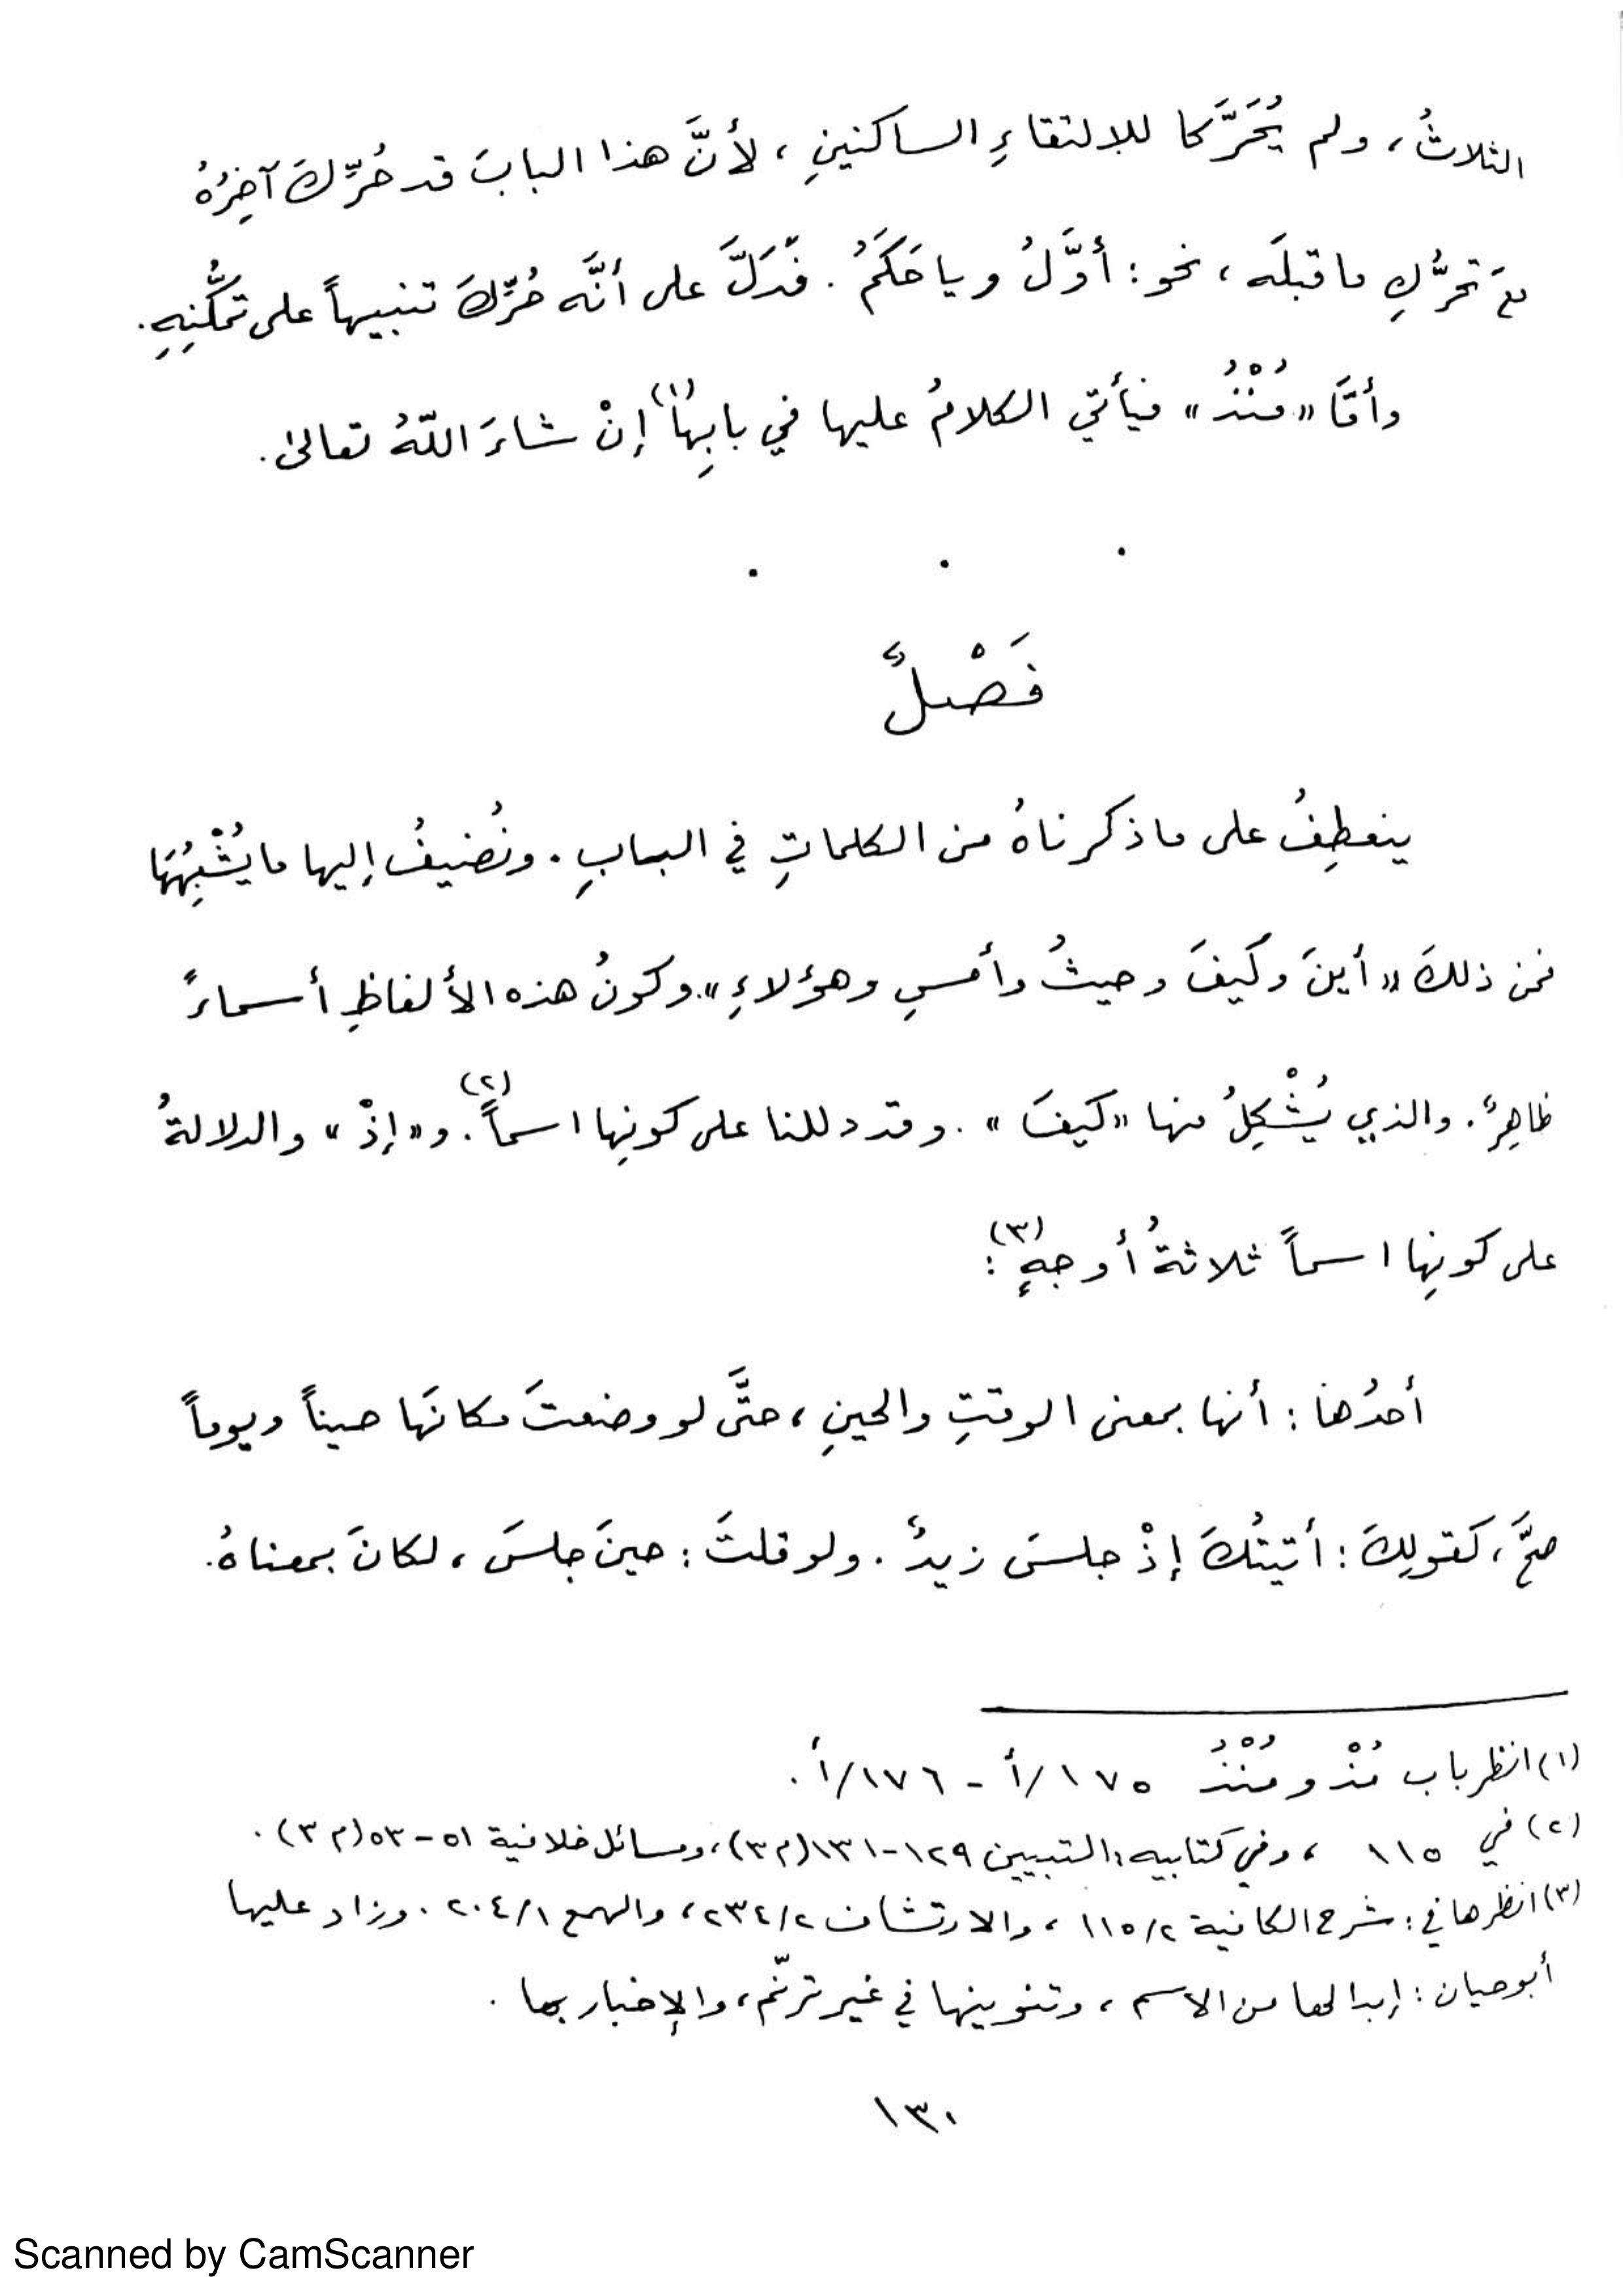 الثلاثُ، ولم يُحَرَّكا للالتقاءِ الساكنينِ، لأنَّ هذا البابَ قد حُرِّكَ آخِرُهُ
معَ تحرُّكِ ما قبلَه، نحو: أوَّلُ ويا حَكَمُ. فَدَلَّ على أنَّه حُرِّكَ تنبيهاً على تمكُّنِهِ.
وأمَّا «مُنْذُ» فيأتي الكلامُ عليها في بابِها(١) إنْ شاءَ اللّهُ تعالىٰ.
. . .
فَصْلٌ
ينعطِفُ على ما ذكرناهُ من الكلماتِ في البابِ. ونُضيفُ إليها ما يُشْبِهُهَا
فمن ذلكَ «أينَ وكَيفَ وحيثُ وأمسِ وهؤلاءِ». وكونُ هذه الألفاظِ أسماءً
ظاهِرٌ. والذي يُشْكِلُ منها «كيفَ». وقد دللنا على كونِها اسماً(٢). و«إذْ» والدلالةُ
على كونِها اسماً ثلاثةُ أوجهٍ(٣):
أحدُها: أنها بمعنى الوقتِ والحينِ، حتَّى لو وضعتَ مكانَها حيناً ويوماً
صحَّ، كقولِكَ: أتيتُكَ إذْ جلسَ زيدٌ. ولو قلتَ: حينَ جلسَ، لكانَ بمعناهُ.
(١) انظر باب مُذْ ومُنْذُ ١٧٥/أ - ١٧٦/أ.
(٢) في ١١٥، وفي كتابيه: التبيين ١٢٩-١٣١(م٣)، ومسائل خلافية ٥١-٥٣(م٣).
(٣) انظرها في: شرح الكافية ١١٥/٢، والارتشاف ٢٣٤/٢، والهمع ٢٠٤/١. وزاد عليها
أبو حيان: إبدالها من الاسم، وتنوينها في غير ترنّم، والإخبار بها.
١٣٠
Scanned by CamScanner